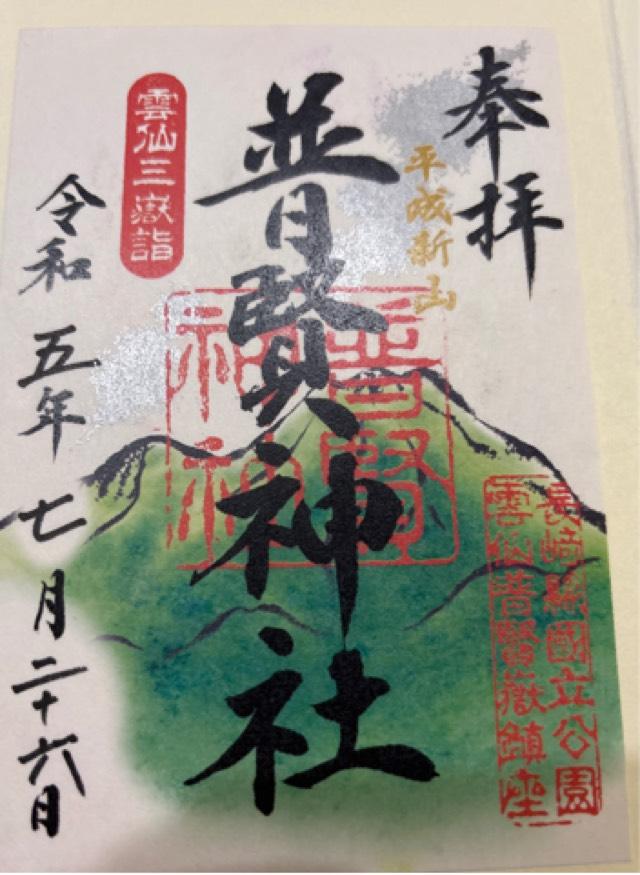 奉拝
平成新山
普賢神社
雲仙三嶽詣
令和五年七月二十六日
普賢
神社
長崎縣國立公園
雲仙普賢嶽鎮座